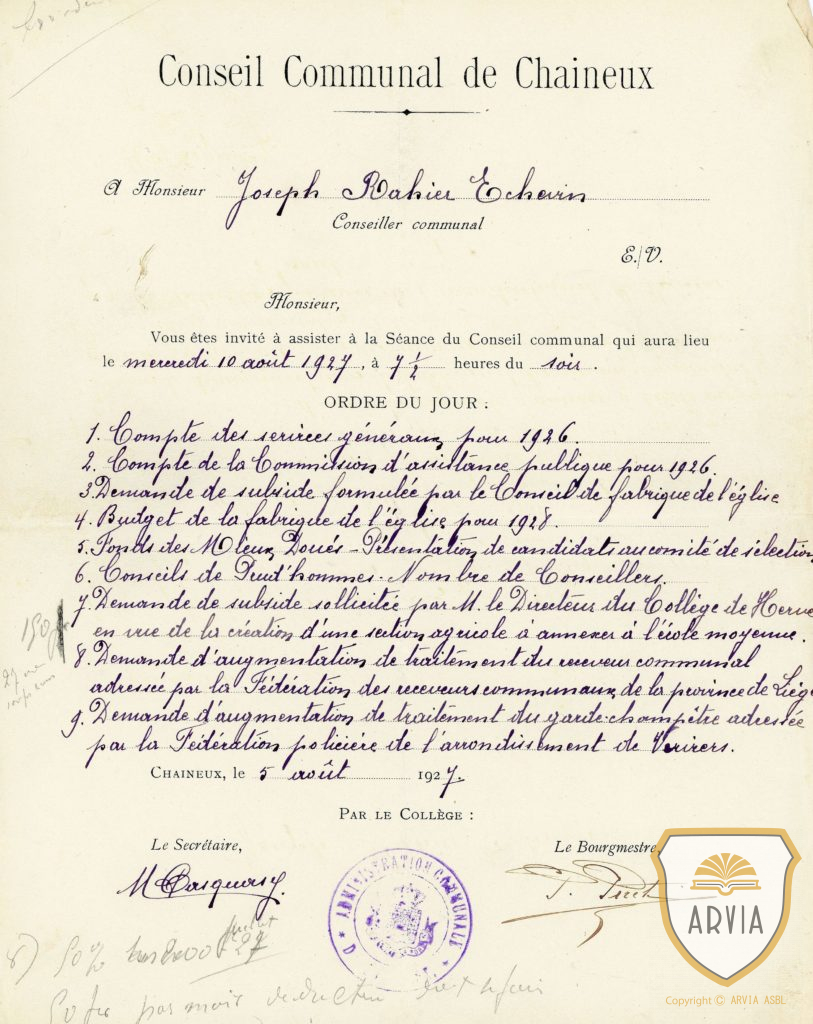 Conseil Communal de Chaineux
A Monsieur Joseph Rahier Echevin
Conseiller communal
E./V.
Monsieur,
Vous êtes invité à assister à la Séance du Conseil communal qui aura lieu
le mercredi 10 août 1927, à 7 1/2 heures du soir.
ORDRE DU JOUR :
1. Compte des services généraux pour 1926.
2. Compte de la Commission d'assistance publique pour 1926.
3. Demande de subside formulée par le Conseil de fabrique de l'église
4. Budget de la fabrique de l'église pour 1928.
5. Fonds des Mieux Doués - Présentation de candidats au comité de sélection
6. Conseils de Prud'hommes. Nombre de Conseillers.
7. Demande de subside sollicitée par M. le Directeur du Collège de Herve
en vue de la création d'une section agricole à annexer à l'école moyenne.
150
8. Demande d'augmentation de traitement du receveur communal
adressée par la Fédération des receveurs communaux de la province de Liége
9. Demande d'augmentation de traitement du garde-champêtre adressée
par la Fédération policière de l'arrondissement de Verviers.
CHAINEUX, le 5 août 1927.
PAR LE COLLÈGE :
Le Secrétaire, Le Bourgmestre,
ADMINISTRATION COMMUNALE
8) 50% 27
50 frs par mois
ARVIA
Copyright © ARVIA ASBL